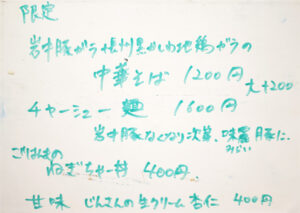 限定
岩中豚ガラ 信州黒かしわ地鶏ガラの
中華そば 1200円
大+200
チャーシュー麺 1600円
岩中豚なくなり次第、味麗豚に。
みらい
ごはんもの
ねぎちゃー丼 400円
甘味 じんさんの生クリーム杏仁 400円